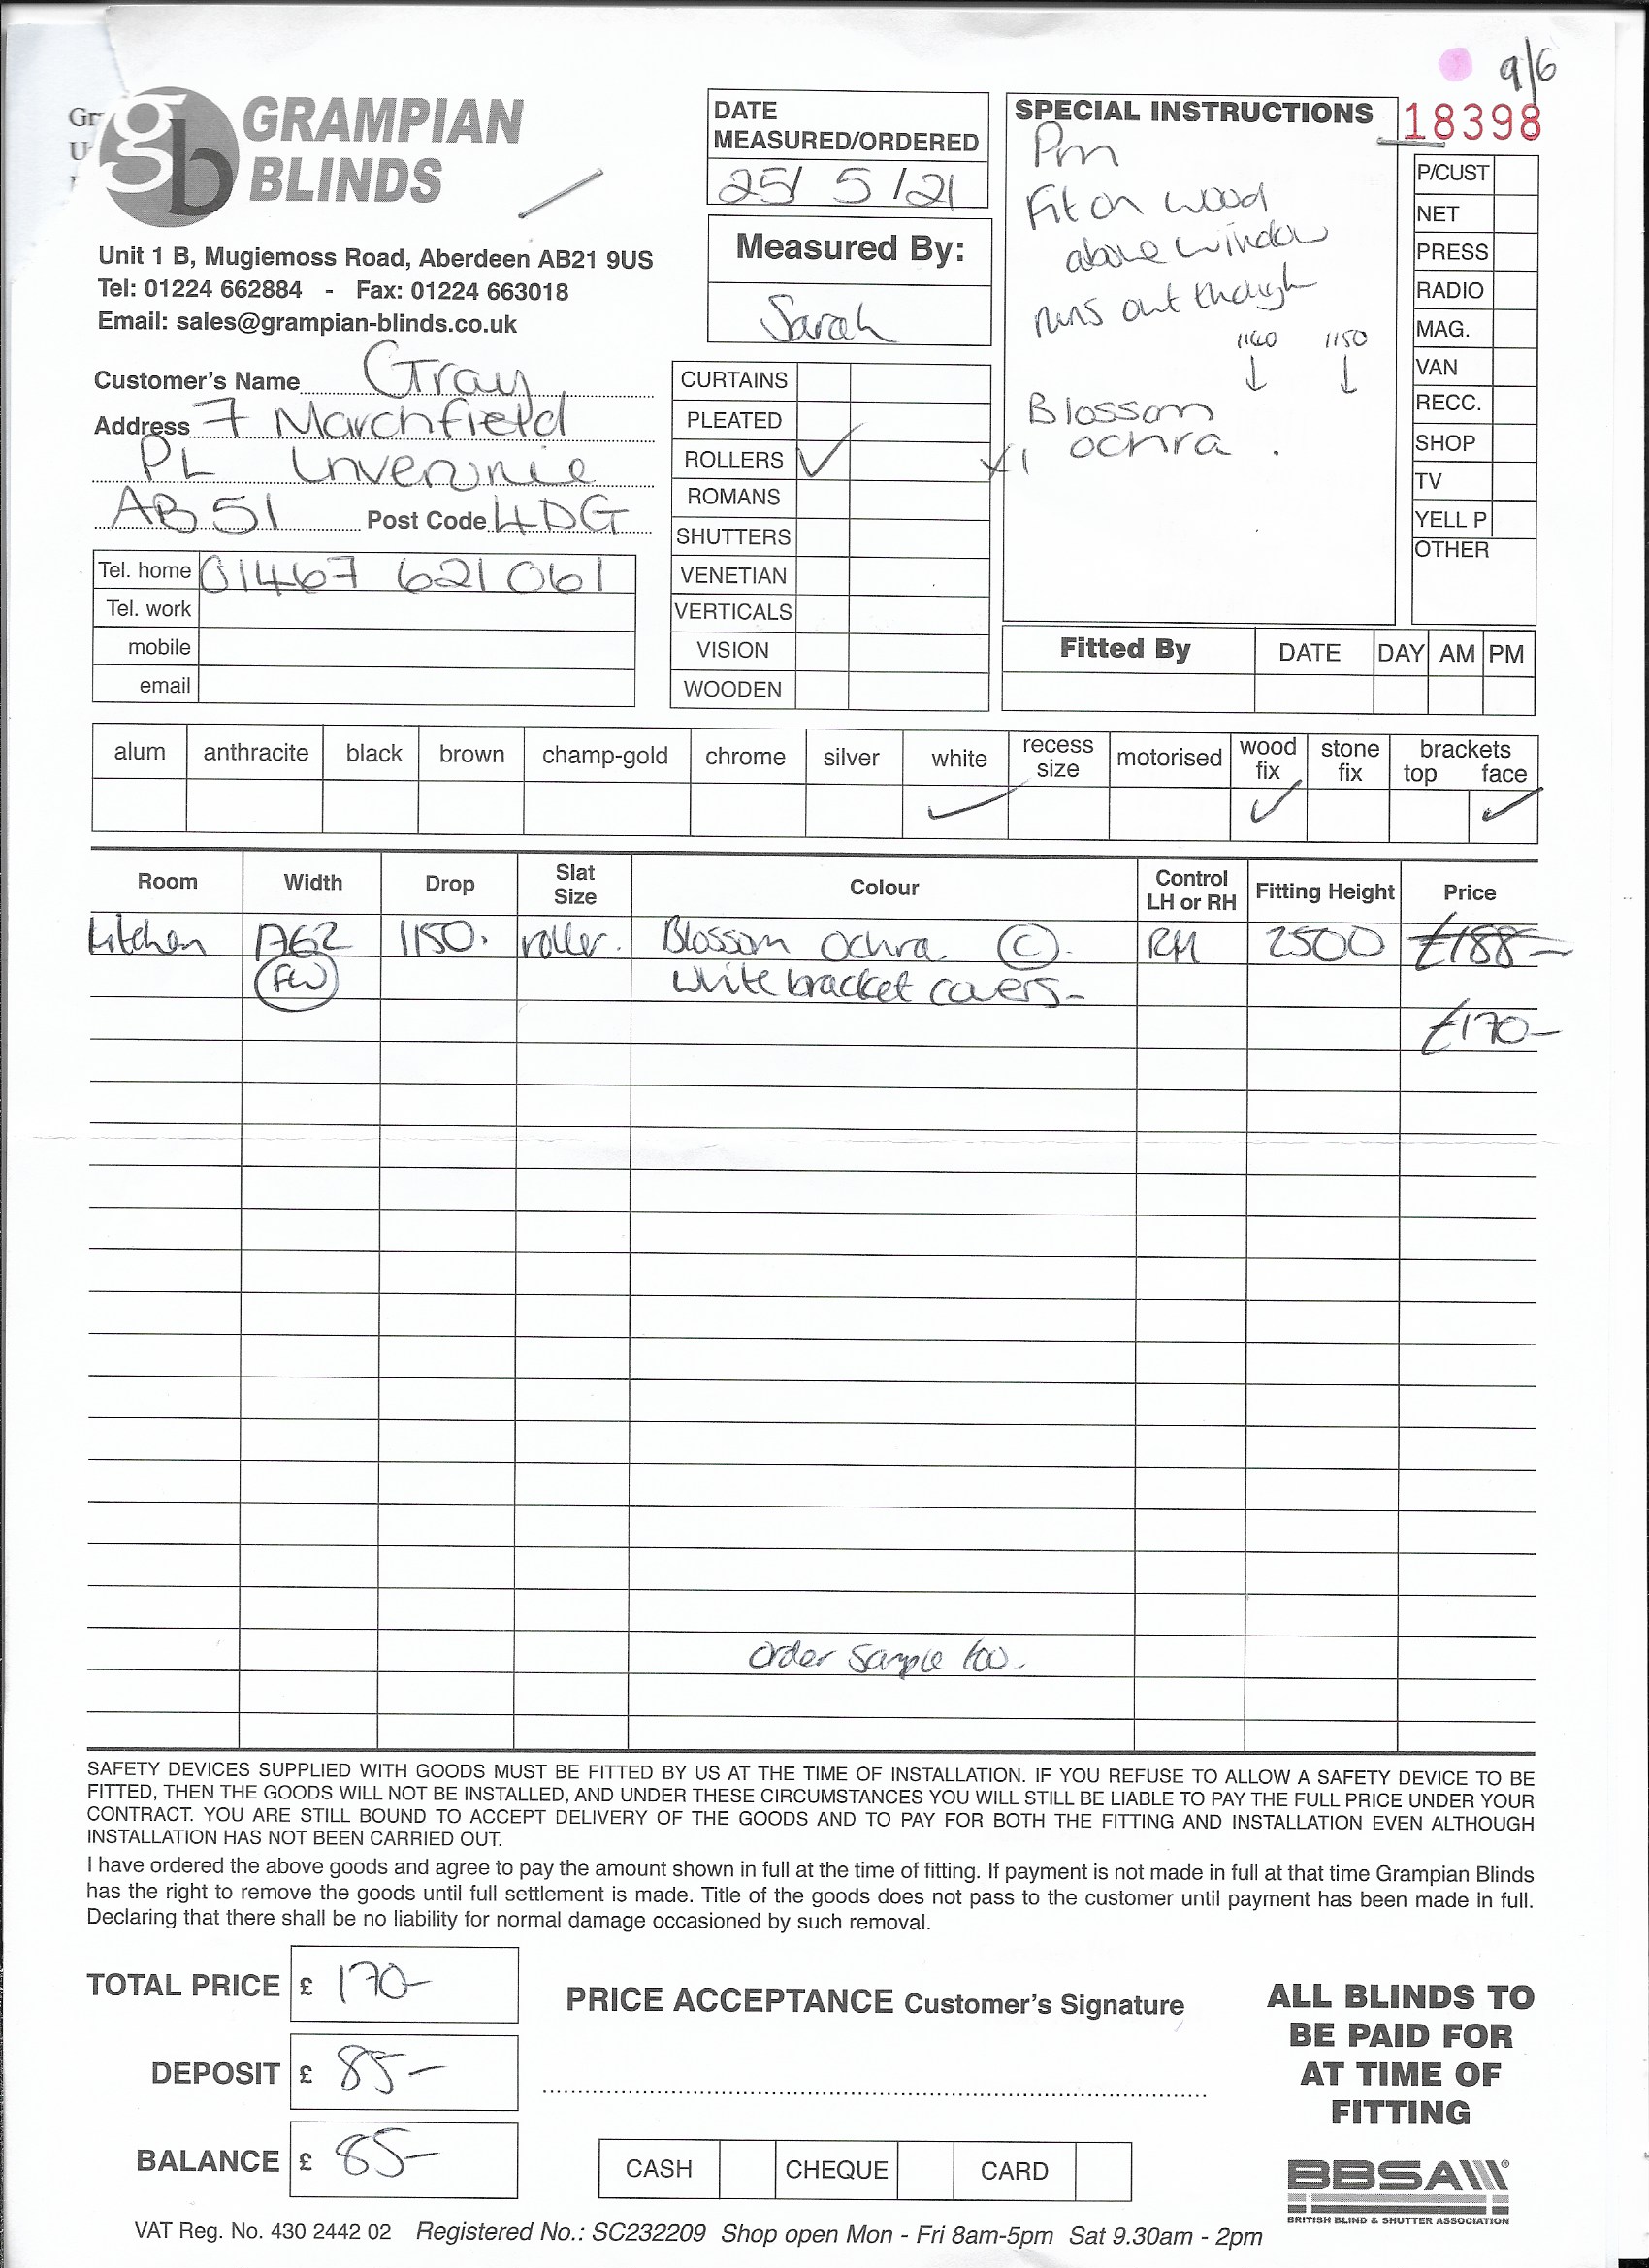 9/6
GRAMPIAN
BLINDS
Unit 1 B, Mugiemoss Road, Aberdeen AB21 9US
Tel: 01224 662884 - Fax: 01224 663018
Email: sales@grampian-blinds.co.uk
Customer's Name Gray
Address 7 Marchfield
PL Inverurie
AB51 Post Code 4DG
Tel. home 01467 621061
Tel. work
mobile
email
DATE
MEASURED/ORDERED
25/ 5 /21
Measured By:
Sarah
CURTAINS
PLEATED
ROLLERS ✓
ROMANS
SHUTTERS
VENETIAN
VERTICALS
VISION
WOODEN
SPECIAL INSTRUCTIONS
Pm
Fit on wood
above window
runs out though
1140 1150
↓ ↓
Blossom
x1 ochra .
18398
P/CUST
NET
PRESS
RADIO
MAG.
VAN
RECC.
SHOP
TV
YELL P
OTHER
Fitted By DATE DAY AM PM
alum anthracite black brown champ-gold chrome silver white recess size motorised wood fix stone fix brackets top face
✓ ✓ ✓
Room Width Drop Slat Size Colour Control LH or RH Fitting Height Price
kitchen 1762 1150. roller. Blossom ochra (C). RH 2500 £188-
white bracket covers-
£170-
order sample too.
SAFETY DEVICES SUPPLIED WITH GOODS MUST BE FITTED BY US AT THE TIME OF INSTALLATION. IF YOU REFUSE TO ALLOW A SAFETY DEVICE TO BE
FITTED, THEN THE GOODS WILL NOT BE INSTALLED, AND UNDER THESE CIRCUMSTANCES YOU WILL STILL BE LIABLE TO PAY THE FULL PRICE UNDER YOUR
CONTRACT. YOU ARE STILL BOUND TO ACCEPT DELIVERY OF THE GOODS AND TO PAY FOR BOTH THE FITTING AND INSTALLATION EVEN ALTHOUGH
INSTALLATION HAS NOT BEEN CARRIED OUT.
I have ordered the above goods and agree to pay the amount shown in full at the time of fitting. If payment is not made in full at that time Grampian Blinds
has the right to remove the goods until full settlement is made. Title of the goods does not pass to the customer until payment has been made in full.
Declaring that there shall be no liability for normal damage occasioned by such removal.
TOTAL PRICE £ 170-
DEPOSIT £ 85-
BALANCE £ 85-
PRICE ACCEPTANCE Customer's Signature
CASH CHEQUE CARD
ALL BLINDS TO
BE PAID FOR
AT TIME OF
FITTING
BBSA
BRITISH BLIND & SHUTTER ASSOCIATION
VAT Reg. No. 430 2442 02 Registered No.: SC232209 Shop open Mon - Fri 8am-5pm Sat 9.30am - 2pm